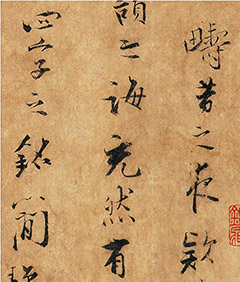 疇昔之夜欵
頭之誨充然有
四字之銘簡